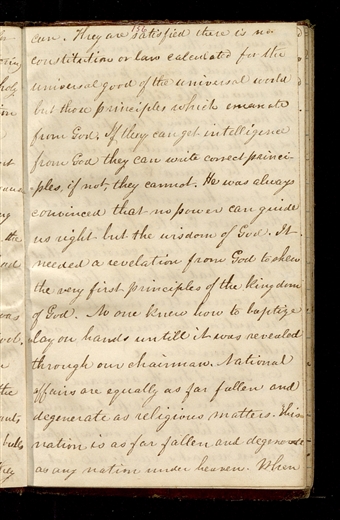 136
can. They are satisfied there is no
constitution or law calculated for the
universal good of the universal world
but those principles which emanate
from God. If they can get intelligence
from God they can write correct princi-
ples, if not, they cannot. He was always
convinced that no power can guide
us right but the wisdom of God. It
needed a revelation from God to shew
the very first principles of the kingdom
of God. No one knew how to baptize
lay on hands untill it was revealed
through our chairman. National
affairs are equally as far fallen and
degenerate as religious matters. This
nation is as far fallen and degenerate
as any nation under heaven. When